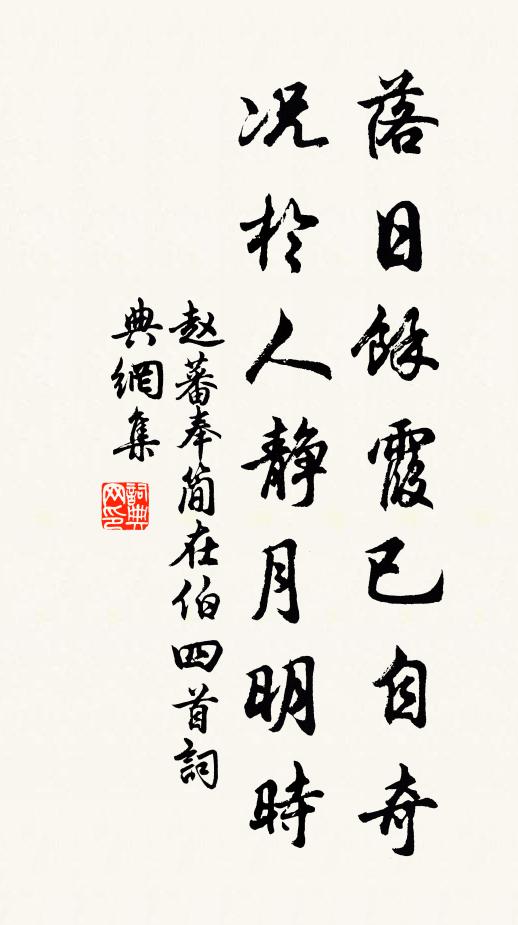 落日餘霞已自奇
况於人静月明時
赵蕃奉简在伯四首詞
典網集
詞典网印